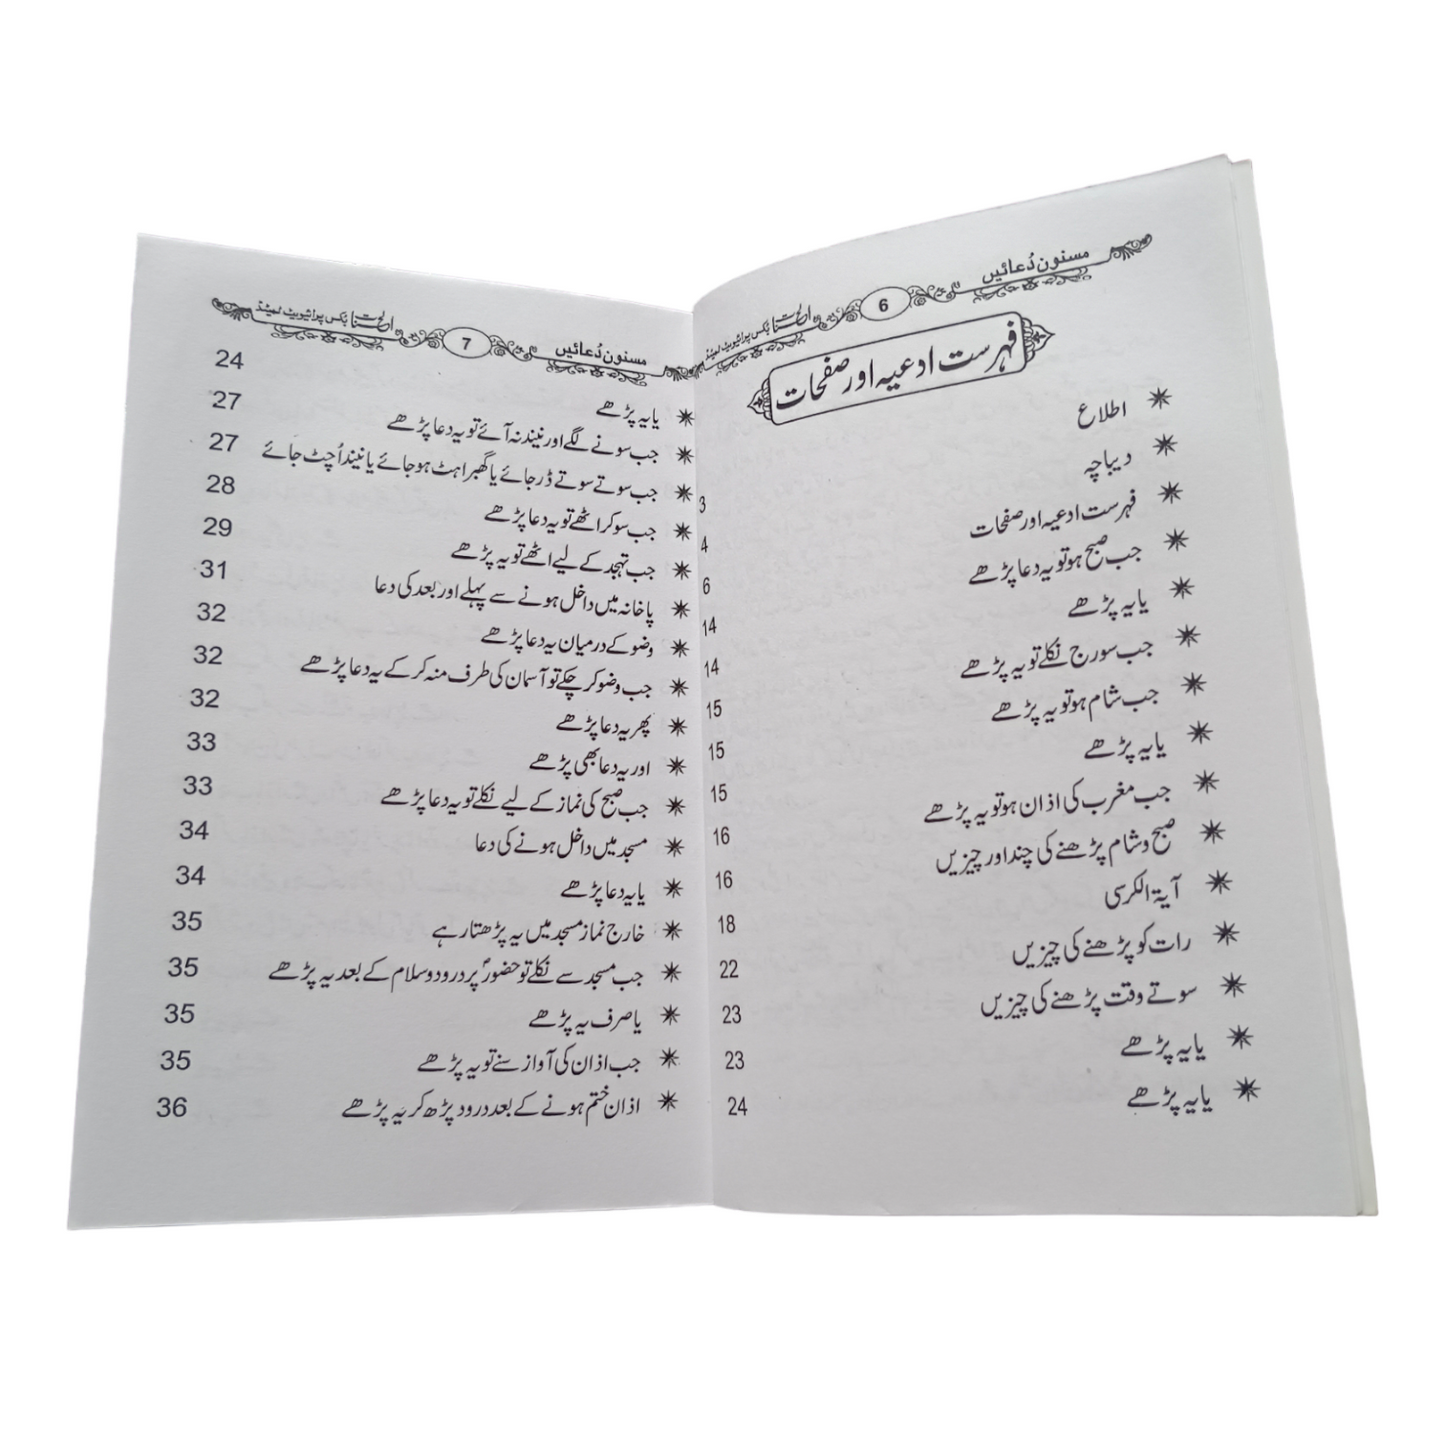 مسنون دُعائیں
6
الحسنات بکس پرائیویٹ لمیٹڈ
فہرست ادعیہ اور صفحات
✴ اطلاع 3
✴ دیباچہ 4
✴ فہرست ادعیہ اور صفحات 6
✴ جب صبح ہو تو یہ دعا پڑھے 14
✴ یا یہ پڑھے 14
✴ جب سورج نکلے تو یہ پڑھے 15
✴ جب شام ہو تو یہ پڑھے 15
✴ یا یہ پڑھے 15
✴ جب مغرب کی اذان ہو تو یہ پڑھے 16
✴ صبح و شام پڑھنے کی چند اور چیزیں 16
✴ آیۃ الکرسی 18
✴ رات کو پڑھنے کی چیزیں 22
✴ سوتے وقت پڑھنے کی چیزیں 23
✴ یا یہ پڑھے 23
✴ یا یہ پڑھے 24
مسنون دُعائیں
7
الحسنات بکس پرائیویٹ لمیٹڈ
✴ یا یہ پڑھے 24
✴ جب سونے لگے اور نیند نہ آئے تو یہ دعا پڑھے 27
✴ جب سوتے سوتے ڈر جائے یا گھبراہٹ ہو جائے یا نیند اُچٹ جائے 27
✴ جب سو کر اٹھے تو یہ دعا پڑھے 28
✴ جب تہجد کے لیے اٹھے تو یہ پڑھے 29
✴ پاخانہ میں داخل ہونے سے پہلے اور بعد کی دعا 31
✴ وضو کے درمیان یہ دعا پڑھے 32
✴ جب وضو کر چکے تو آسمان کی طرف منہ کر کے یہ دعا پڑھے 32
✴ پھر یہ دعا پڑھے 32
✴ اور یہ دعا بھی پڑھے 33
✴ جب صبح کی نماز کے لیے نکلے تو یہ دعا پڑھے 33
✴ مسجد میں داخل ہونے کی دعا 34
✴ یا یہ دعا پڑھے 34
✴ خارج نماز مسجد میں یہ پڑھتا رہے 35
✴ جب مسجد سے نکلے تو حضورؐ پر درود و سلام کے بعد یہ پڑھے 35
✴ یا صرف یہ پڑھے 35
✴ جب اذان کی آواز سنے تو یہ پڑھے 35
✴ اذان ختم ہونے کے بعد درود پڑھ کر یہ پڑھے 36